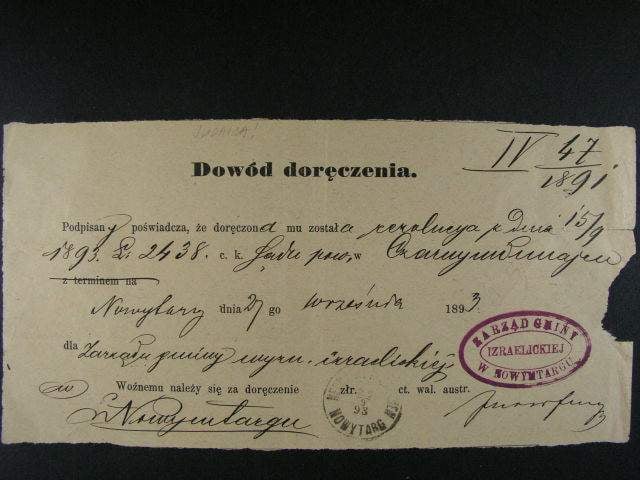 JUDAICA!
IV 47/1891
Dowód doręczenia.
Podpisany poświadcza, że doręczona mu została rezolucya z dnia 15/9
1893 L. 2438 c. k. Sądu pow. w
z terminem na
Nowytarg dnia 27 go września 1893
dla Zarządu gminy wyzn. izraelickiej
Woźnemu należy się za doręczenie złr. ct. wal. austr.
w Nowymtargu
ZARZĄD GMINY
IZRAELICKIEJ
W NOWYMTARGU
93
NOWYTARG